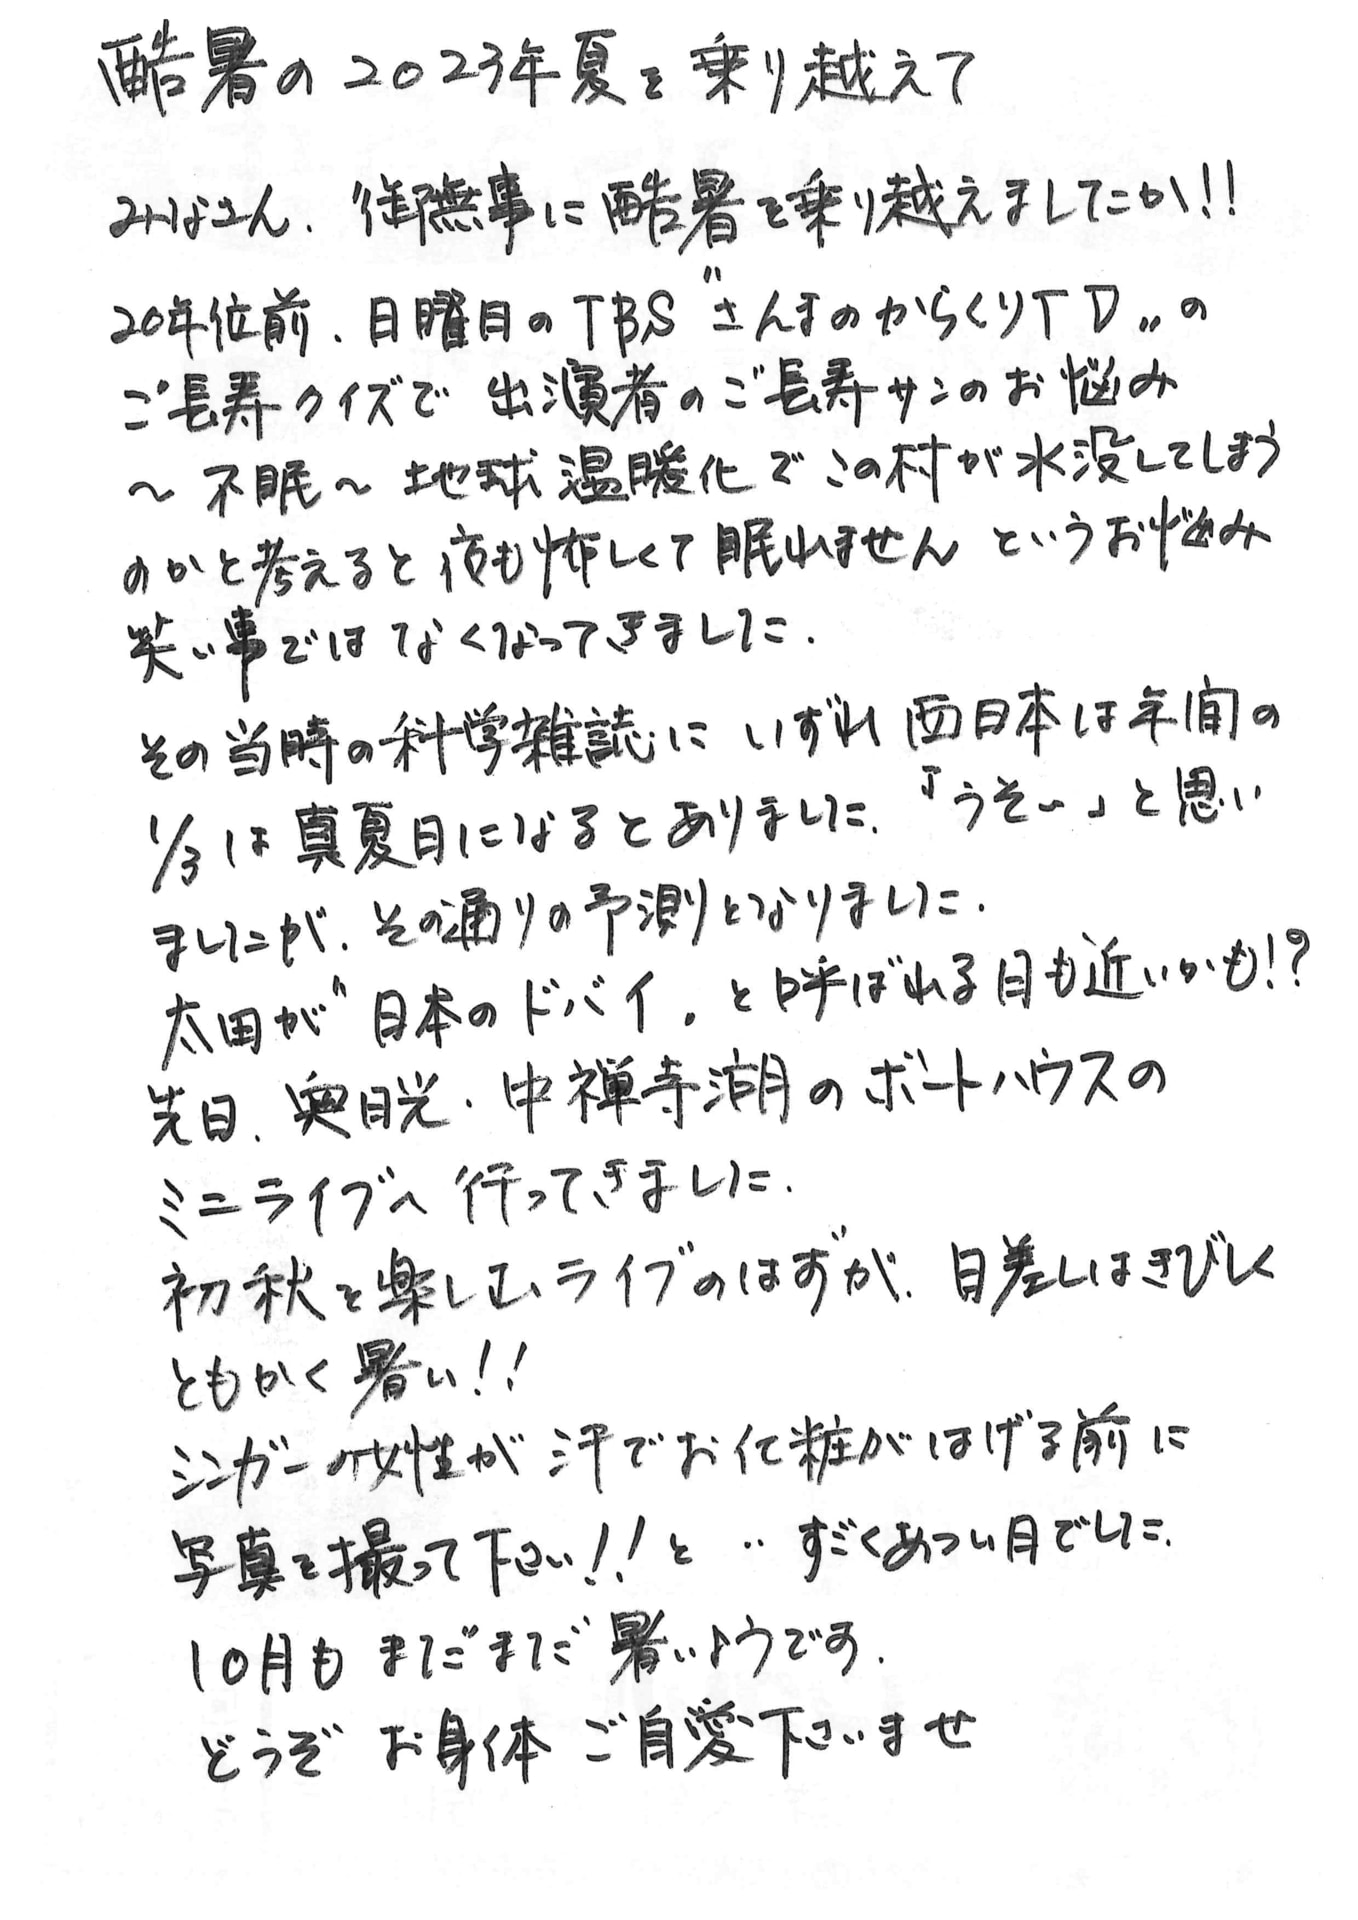 酷暑の2023年夏を乗り越えて
みなさん、御無事に酷暑を乗り越えましたか!!
20年位前、日曜日のTBS〝さんまのからくりTD〟の
ご長寿クイズで出演者のご長寿サンのお悩み
〜不眠〜地球温暖化でこの村が水没してしまう
のかと考えると夜も怖しくて眠れませんというお悩み
笑い事ではなくなってきました.
その当時の科学雑誌にいずれ西日本は年間の
1/3は真夏日になるとありました.「うそ〜」と思い
ましたが、その通りの予測となりました.
太田が〝日本のドバイ〟と呼ばれる日も近いかも!?
先日、奥日光・中禅寺湖のボートハウスの
ミニライブへ行ってきました.
初秋を楽しむライブのはずが、日差しはきびしく
ともかく暑い!!
シンガーの女性が汗でお化粧がはげる前に
写真を撮って下さい!!と‥すごくあつい日でした.
10月もまだまだ暑いようです.
どうぞお身体ご自愛下さいませ